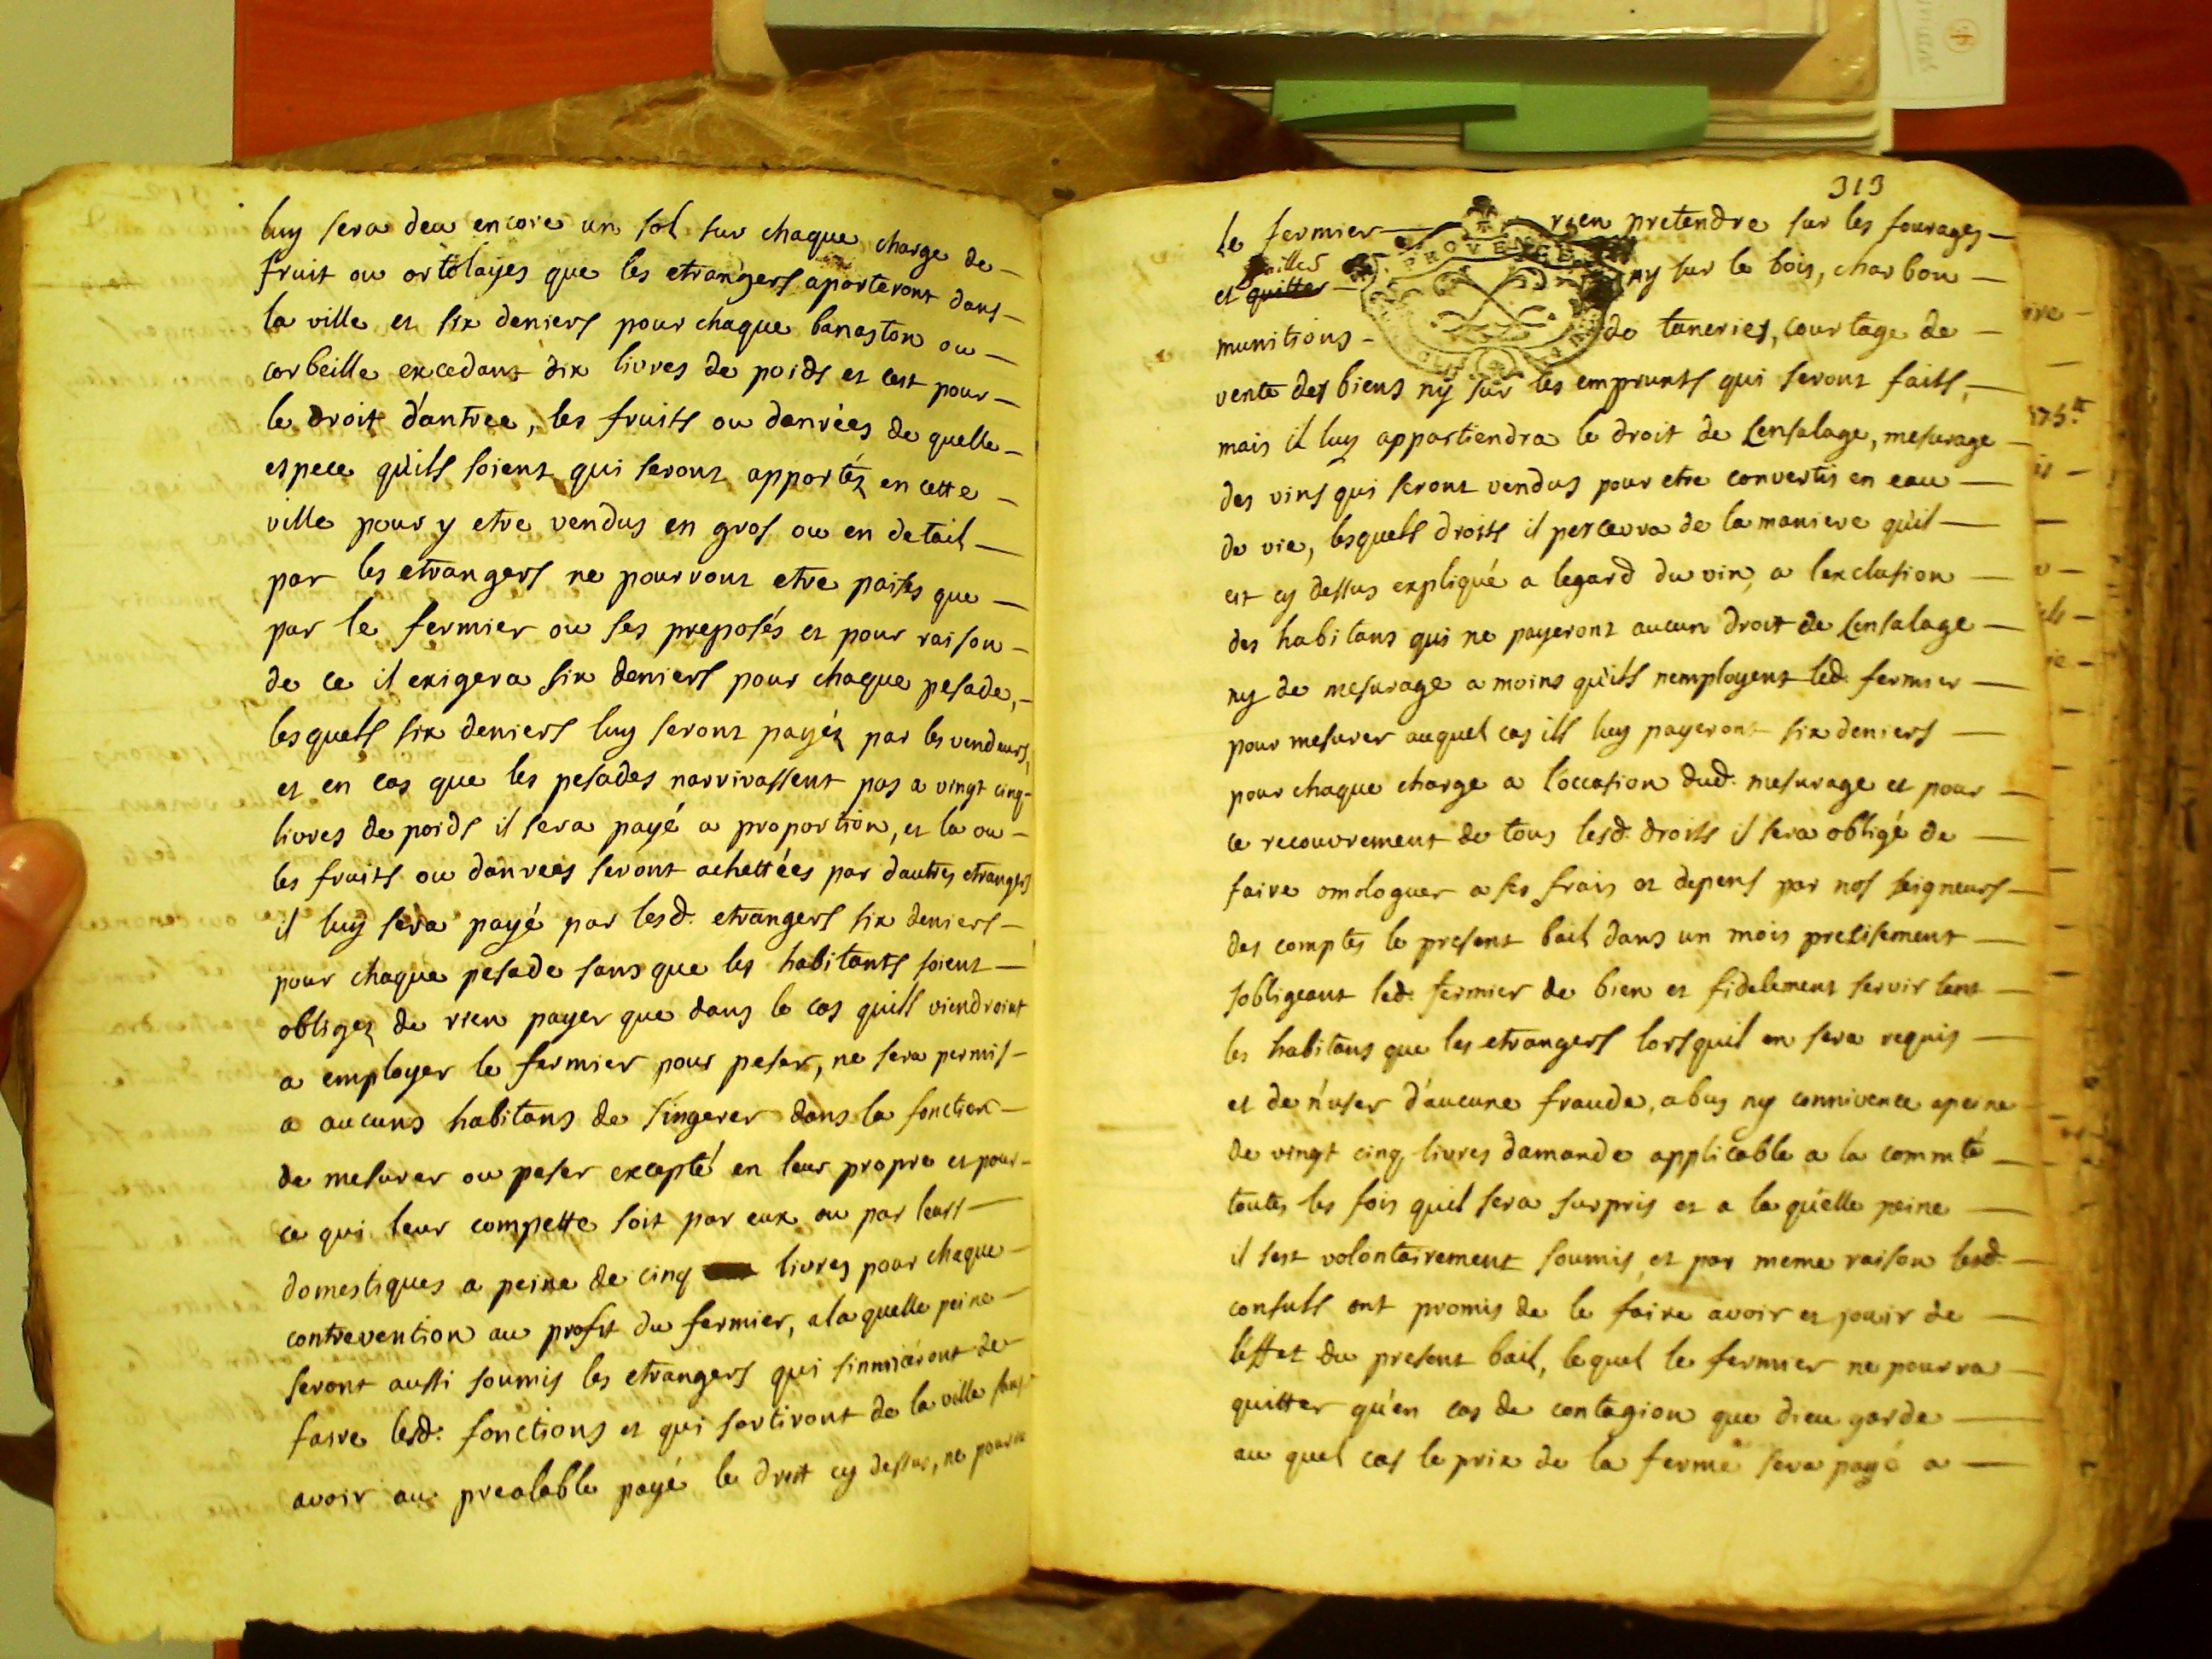 luy sera deu encore un sol sur chaque charge de
fruit ou ortolayes que les etrangers aporteront dans
la ville et six deniers pour chaque banaston ou
corbeille excedant dix livres de poids et cest pour
le droit d'antree, les fruits ou danrées de quelle
espece qu'ils soient qui seront apportéz en cette
ville pour y etre vendus en gros ou en detail
par les etrangers ne pourront etre paises que
par le fermier ou ses preposés et pour raison
de ce il exigera six deniers pour chaque pesade,
lesquels six deniers luy seront payéz par les vendeurs,
et en cas que les pesades narrivassent pas a vingt cinq
livres de poids il sera payé a proportion, et la ou
les fruits ou danrees seront achettées par dautres etrangers
il luy sera payé par lesd. etrangers six deniers
pour chaque pesade sans que les habitants soient
obligez de rien payer que dans le cas quils viendroint
a employer le fermier pour peser, ne sera permis
a aucuns habitans de s'ingerer dans la fonction
de mesurer ou peser excepté en leur propre et pour
ce qui leur compette soit par eux ou par leurs
domestiques a peine de cinq livres pour chaque
contrevention au profit du fermier, a la quelle peine
seront aussi soumis les etrangers qui de
faire lesd. fonctions et qui sortiront de la ville sans
avoir au prealable payé le droit cy dessus, ne pourra
313
le fermier rien pretendre sur les fourages
pailles
et quitter ny sur le bois, charbon
PROVENCE
munitions de taneries, courtage de
vente des biens ny sur les emprunts qui seront faits,
mais il luy appartiendra le droit de Censalage, mesurage
des vins qui seront vendus pour etre convertis en eau
de vie, lesquels droits il percevra de la maniere qu'il
est cy dessus expliqué a legard du vin, a lexclusion
des habitans qui ne payeront aucun droit de Censalage
ny de mesurage a moins qu'ils nemployent led. fermier
pour mesurer auquel cas ils luy payeront six deniers
pour chaque charge a l'occasion dud. mesurage et pour
ce recouvrement de tous lesd. droits il sera obligé de
faire omologuer a ses frais et depens par nos seigneurs
des comptes le present bail dans un mois precisement
sobligeant led. fermier de bien et fidelement servir tant
les habitans que les etrangers lorsquil en sera requis
et de n'user d'aucune fraude, abus ny connivence a peine
de vingt cinq livres damande applicable a la commté
toutes les fois quil sera surpris et a la quelle peine
il sest volontairement soumis, et par meme raison lesd.
consuls ont promis de le faire avoir et jouir de
l'effet du present bail, lequel le fermier ne pourra
quitter qu'en cas de contagion que dieu garde
au quel cas le prix de la ferme sera payé a